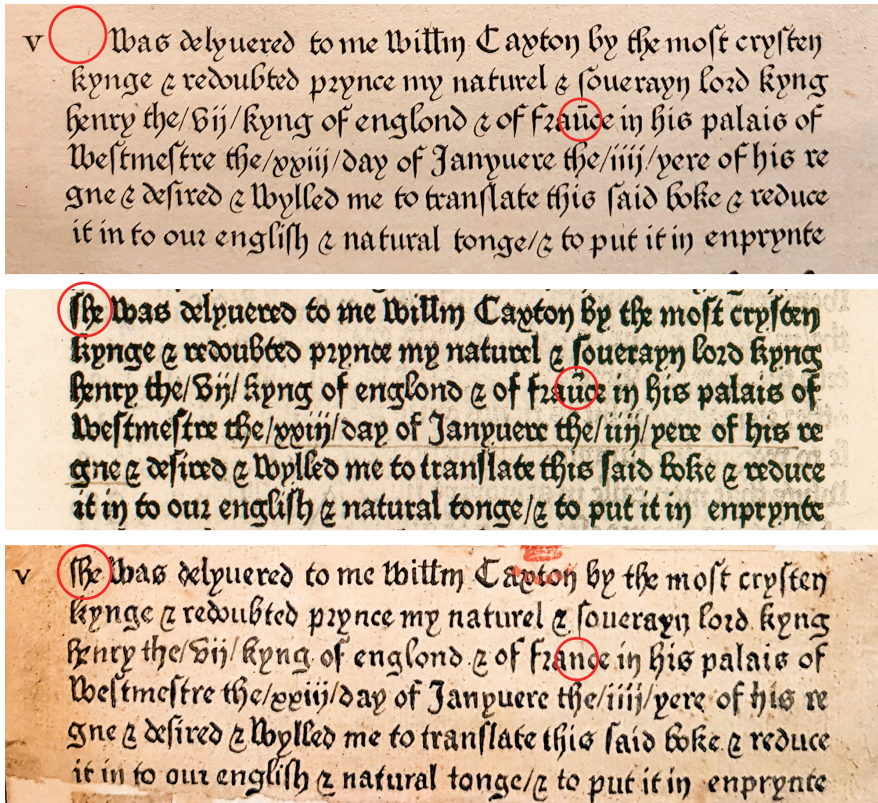 v was delyuered to me willm Caxton by the most crysten
kynge & redoubted prynce my naturel & souerayn lord kyng
henry the/vij/kyng of englond & of fraūce in his palais of
westmestre the/xxiij/day of Janyuere the/iiij/yere of his re
gne & desired & wylled me to translate this said boke & reduce
it in to our english & natural tonge/& to put it in enprynte
she was delyuered to me willm Caxton by the most crysten
kynge & redoubted prynce my naturel & souerayn lord kyng
henry the/vij/kyng of englond & of fraūce in his palais of
westmestre the/xxiij/day of Janyuere the/iiij/yere of his re
gne & desired & wylled me to translate this said boke & reduce
it in to our english & natural tonge/& to put it in enprynte
v she was delyuered to me willm Caxton by the most crysten
kynge & redoubted prynce my naturel & souerayn lord kyng
henry the/vij/kyng of englond & of france in his palais of
westmestre the/xxiij/day of Janyuere the/iiij/yere of his re
gne & desired & wylled me to translate this said boke & reduce
it in to our english & natural tonge/& to put it in enprynte